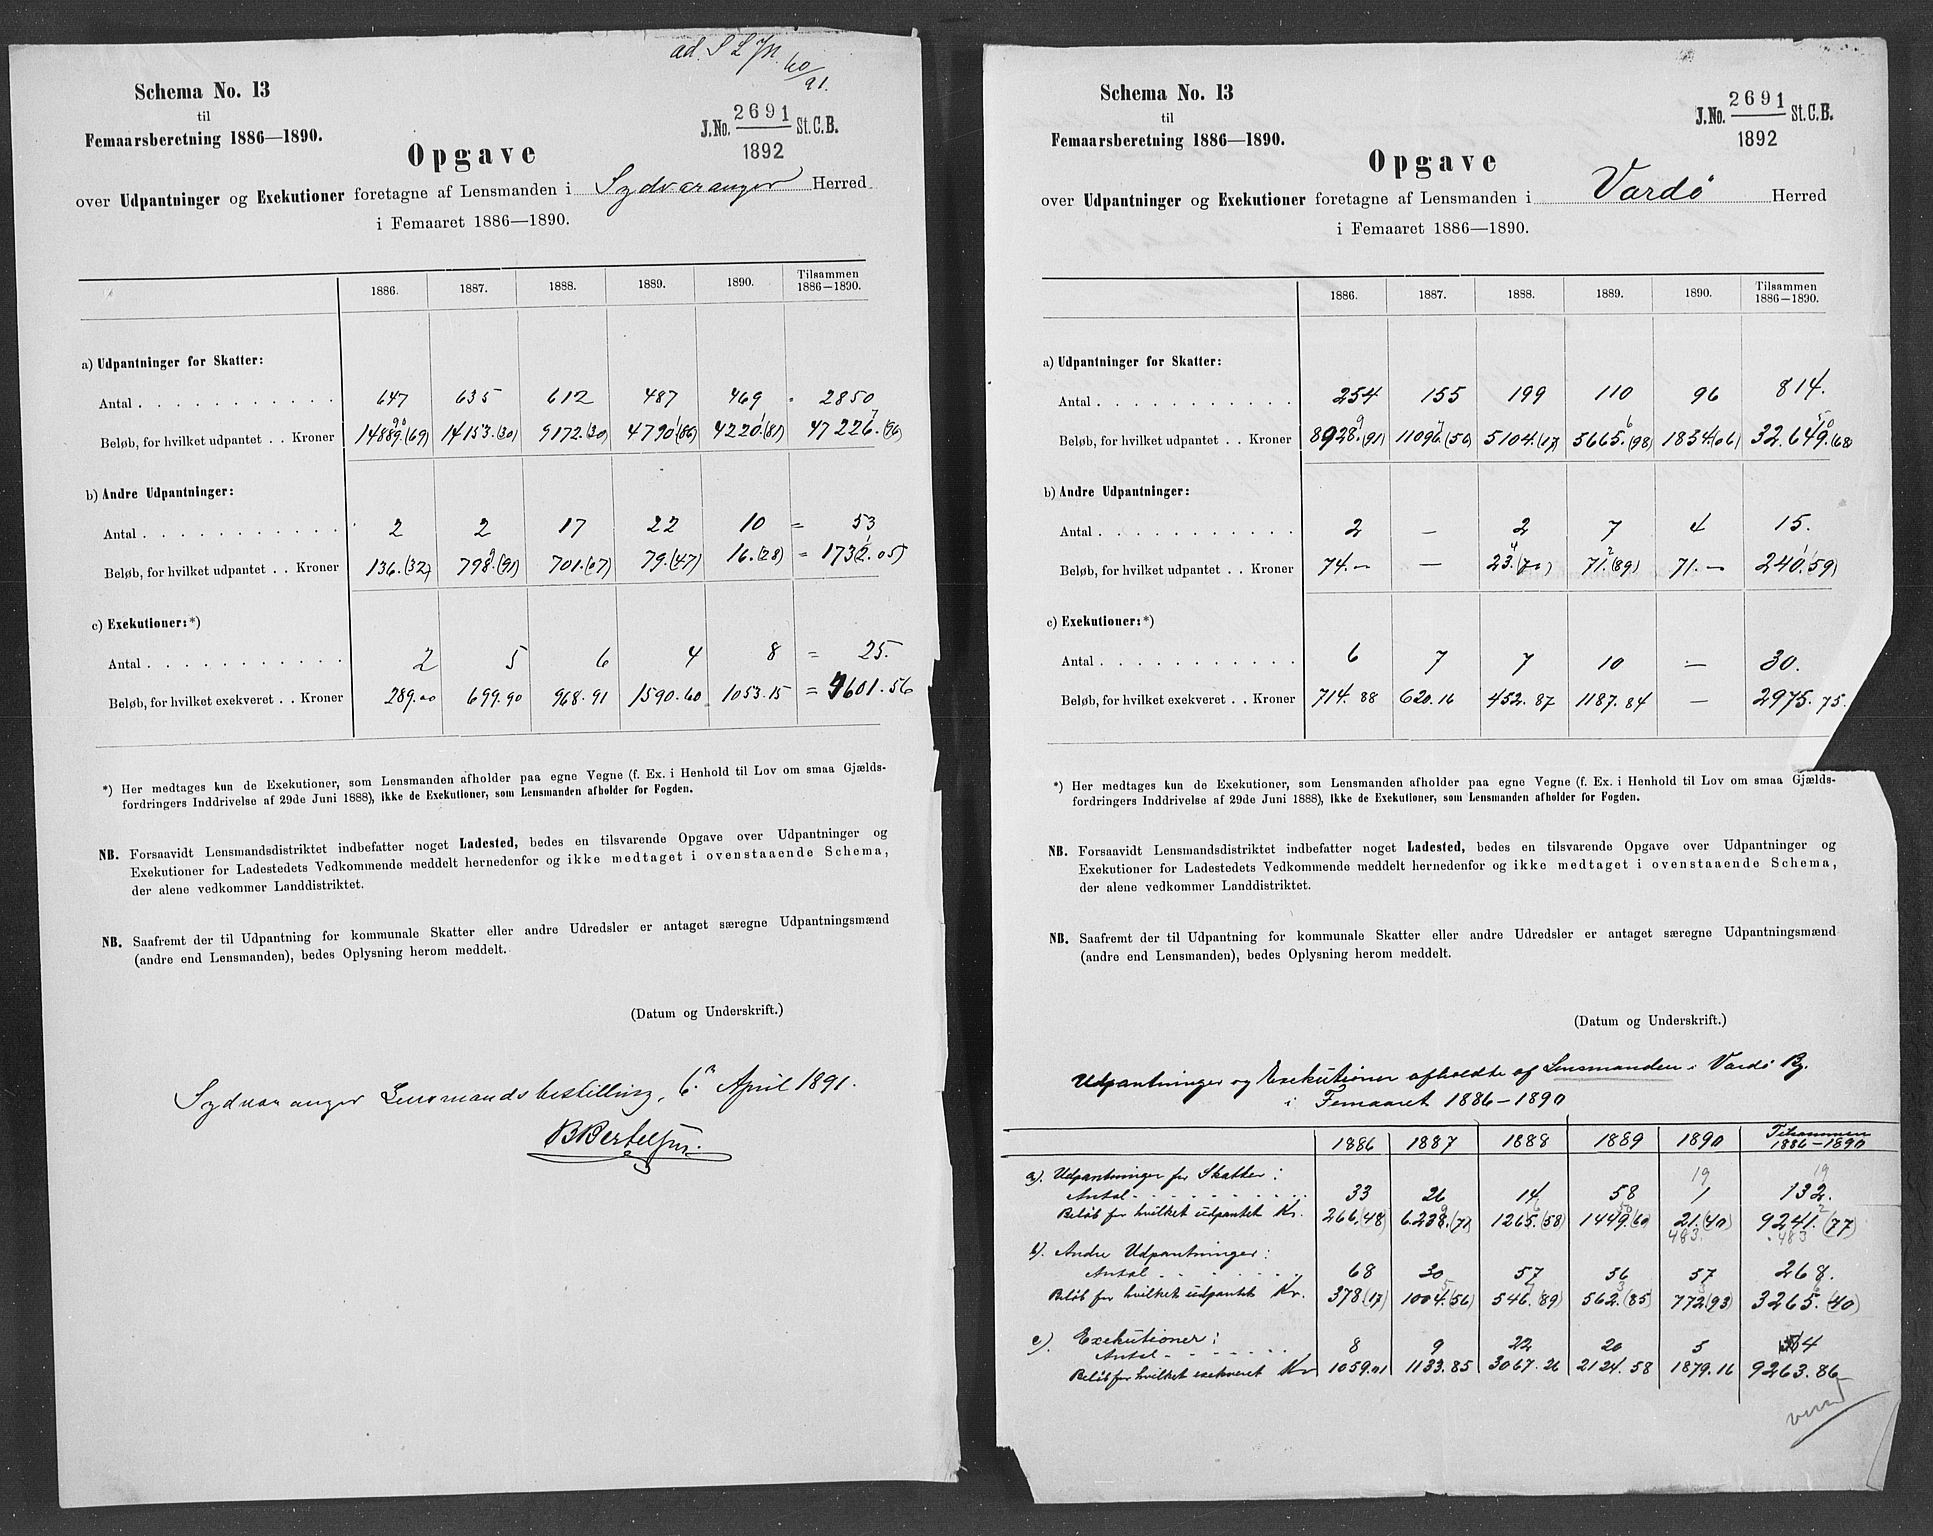 ad. S L J/N. 60/91.
Schema No. 13
til
Femaarsberetning 1886—1890.
J. No. 2691/1892 St. C. B.
Opgave
over Udpantninger og Exekutioner foretagne af Lensmanden i Sydvaranger Herred
i Femaaret 1886—1890.
1886. 1887. 1888. 1889. 1890. Tilsammen 1886—1890.
a) Udpantninger for Skatter:
Antal . . . . . . . . . . . 647 635 612 487 469 2850
Beløb, for hvilket udpantet . . Kroner 14889.(69) 14153.(30) 9172.(30) 4790.(86) 4220.(81) 47226.(96)
b) Andre Udpantninger:
Antal . . . . . . . . . . . 2 2 17 22 10 = 53
Beløb, for hvilket udpantet . . Kroner 136.(32) 798.(91) 701.(07) 79.(47) 16.(28) = 1732.05)
c) Exekutioner:*)
Antal . . . . . . . . . . . 2 5 6 4 8 = 25.
Beløb, for hvilket exekveret . . Kroner 289.00 699.90 968.91 1590.60 1053.15 = 4601.56
*) Her medtages kun de Exekutioner, som Lensmanden afholder paa egne Vegne (f. Ex. i Henhold til Lov om smaa Gjælds-
fordringers Inddrivelse af 29de Juni 1888), ikke de Exekutioner, som Lensmanden afholder for Fogden.
NB. Forsaavidt Lensmandsdistriktet indbefatter noget Ladested, bedes en tilsvarende Opgave over Udpantninger og
Exekutioner for Ladestedets Vedkommende meddelt hernedenfor og ikke medtaget i ovenstaaende Schema,
der alene vedkommer Landdistriktet.
NB. Saafremt der til Udpantning for kommunale Skatter eller andre Udredsler er antaget særegne Udpantningsmænd
(andre end Lensmanden), bedes Oplysning herom meddelt.
(Datum og Underskrift.)
Sydvaranger Lensmandsbestilling, 6. April 1891.
B Bertelsen.
Schema No. 13
til
Femaarsberetning 1886—1890.
J. No. 2691/1892 St. C. B.
Opgave
over Udpantninger og Exekutioner foretagne af Lensmanden i Vardø Herred
i Femaaret 1886—1890.
1886. 1887. 1888. 1889. 1890. Tilsammen 1886—1890.
a) Udpantninger for Skatter:
Antal . . . . . . . . . . . 254 155 199 110 96 814.
Beløb, for hvilket udpantet . . Kroner 8928.(91) 11096.(56) 5104.(17) 5665.(98) 1854.(06) 32.649.(68)
b) Andre Udpantninger:
Antal . . . . . . . . . . . 2 — 2 7 4 15.
Beløb, for hvilket udpantet . . Kroner 74.— — 23.(70) 71.(89) 71.— 240.(59)
c) Exekutioner:*)
Antal . . . . . . . . . . . 6 7 7 10 — 30.
Beløb, for hvilket exekveret . . Kroner 714.88 620.16 452.87 1187.84 — 2975.75.
*) Her medtages kun de Exekutioner, som Lensmanden afholder paa egne Vegne (f. Ex. i Henhold til Lov om smaa Gjælds-
fordringers Inddrivelse af 29de Juni 1888), ikke de Exekutioner, som Lensmanden afholder for Fogden.
NB. Forsaavidt Lensmandsdistriktet indbefatter noget Ladested, bedes en tilsvarende Opgave over Udpantninger og
Exekutioner for Ladestedets Vedkommende meddelt hernedenfor og ikke medtaget i ovenstaaende Schema,
der alene vedkommer Landdistriktet.
NB. Saafremt der til Udpantning for kommunale Skatter eller andre Udredsler er antaget særegne Udpantningsmænd
(andre end Lensmanden), bedes Oplysning herom meddelt.
(Datum og Underskrift.)
Udpantninger og Exekutioner afholdte af Lensmanden i Vardø By.
i Femaaret 1886—1890
1886 1887 1888 1889 1890 Tilsammen 1886—1890
a). Udpantninger for Skatter: 19 19
Antal . . . . . . . . . 33 26 14 58 1 132.
Beløb for hvilket udpantet Kr. 266.(48) 6238.(71) 1265.(58) 1449.(60) 21.(40) 9241.(77)
483. 483
b). Andre Udpantninger:
Antal . . . . . . . 68 30 57 56 57 268.
Beløb for hvilket udpantet Kr. 378(17) 1004.(56) 546.(89) 562.(85) 772(93) 3265.(40)
c). Exekutioner:
Antal . . . . . . . 8 9 22 20 5 64
Beløb for hvilket exekveret Kr 1059.01 1133.85 3067.26 2124.58 1879.16 9263.86